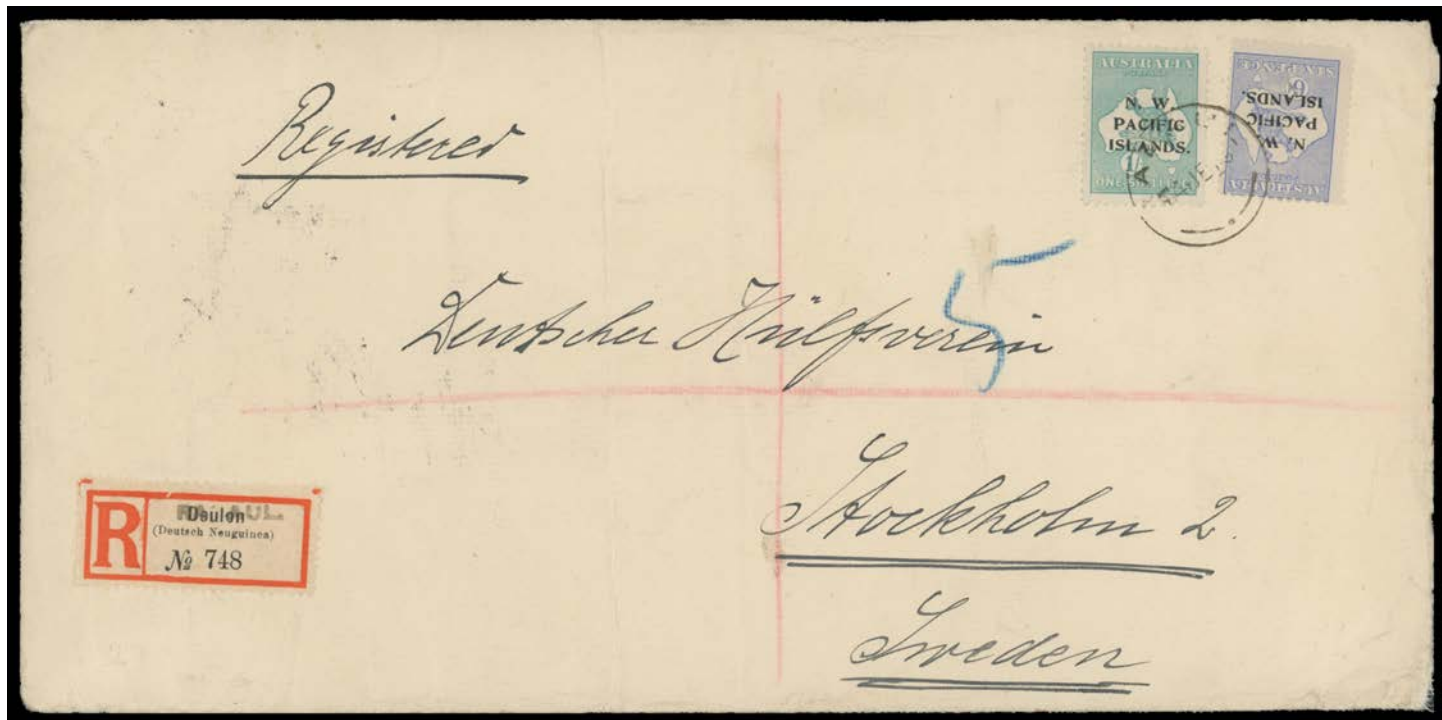 Registered
AUSTRALIA
POSTAGE
N. W.
PACIFIC
ISLANDS.
1/-
ONE SHILLING
AUSTRALIA
POSTAGE
N. W.
PACIFIC
ISLANDS.
6
SIX PENCE
5
Deutscher Hülfsverein
Stockholm 2.
Sweden
R
RABAUL.
Deulon
(Deutsch Neuguinea)
№ 748